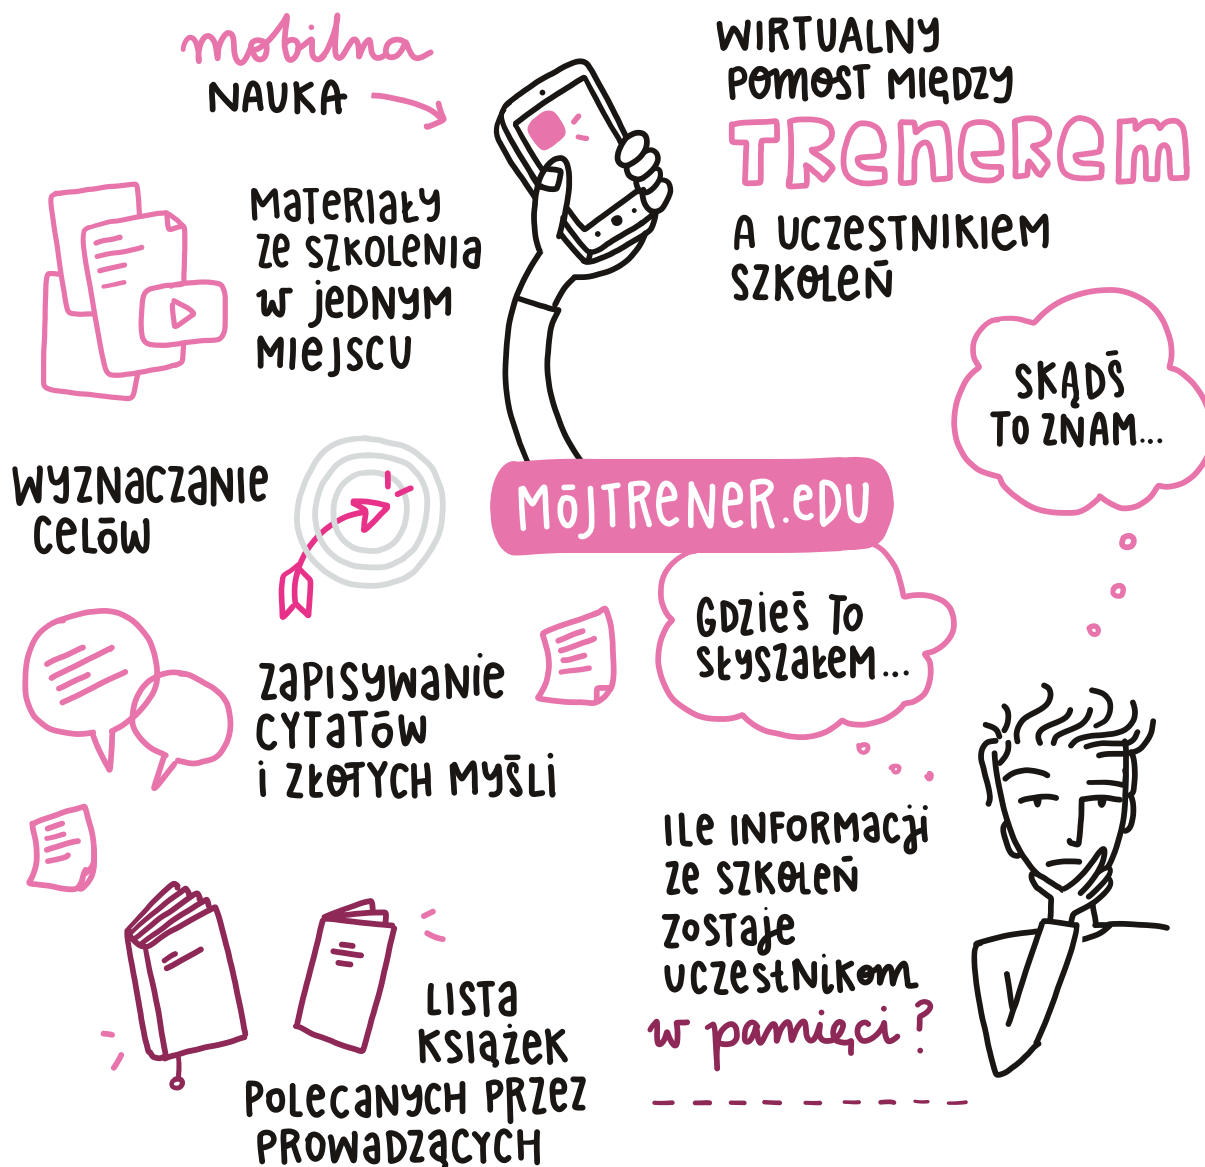 mobilna
NAUKA
WIRTUALNY
POMOST MIĘDZY
TRENEREM
A UCZESTNIKIEM
SZKOLEŃ
MATERIAŁY
ZE SZKOLENIA
W JEDNYM
MIEJSCU
SKĄDŚ
TO ZNAM...
WYZNACZANIE
CELÓW
MÓJTRENER.EDU
GDZIEŚ TO
SŁYSZAŁEM...
ZAPISYWANIE
CYTATÓW
I ZŁOTYCH MYŚLI
ILE INFORMACJI
ZE SZKOLEŃ
ZOSTAJE
UCZESTNIKOM
w pamięci?
LISTA
KSIĄŻEK
POLECANYCH PRZEZ
PROWADZĄCYCH